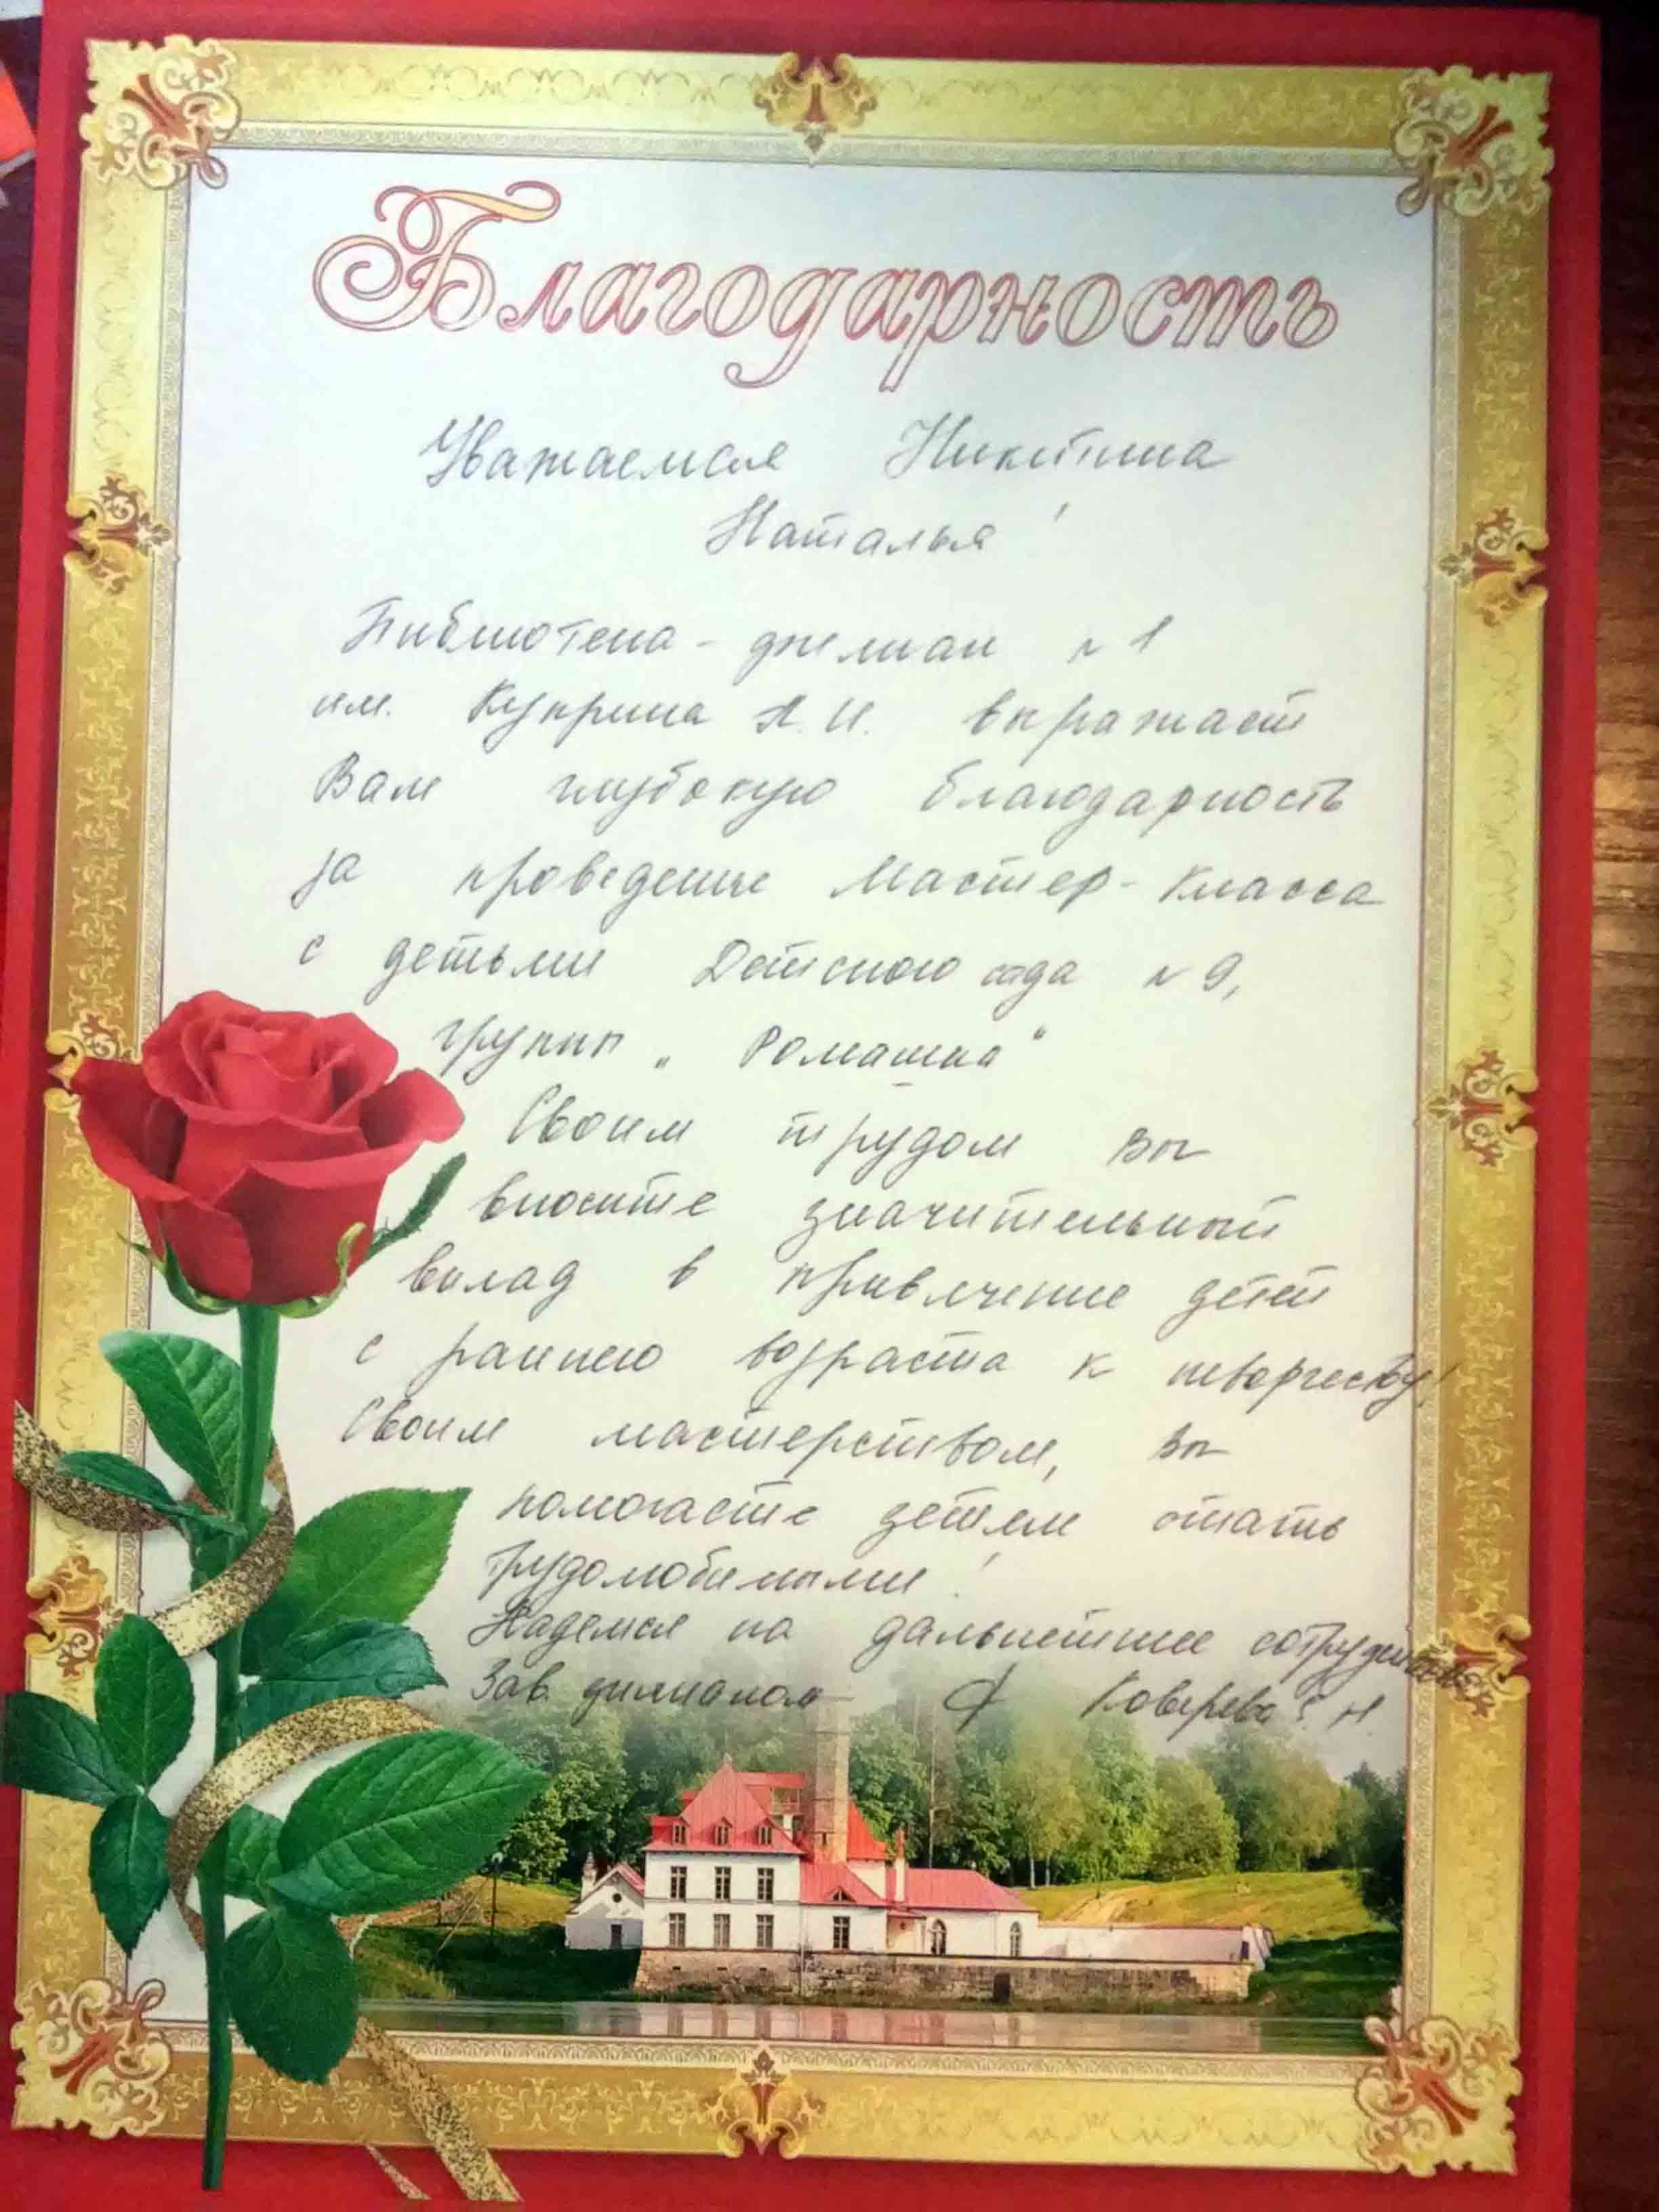 Благодарность
Уважаемая Никитина
Наталья!
Библиотека - филиал №1
им. Куприна А.И. выражает
Вам глубокую благодарность
за проведение Мастер-класса
с детьми Детского сада №9,
групп „Ромашка"
Своим трудом Вы
вносите значительный
вклад в привлечение детей
с раннего возраста к творчеству!
Своим мастерством, Вы
помогаете детям стать
трудолюбивыми!
Надемся на дальнейшее
Зав. филиалом